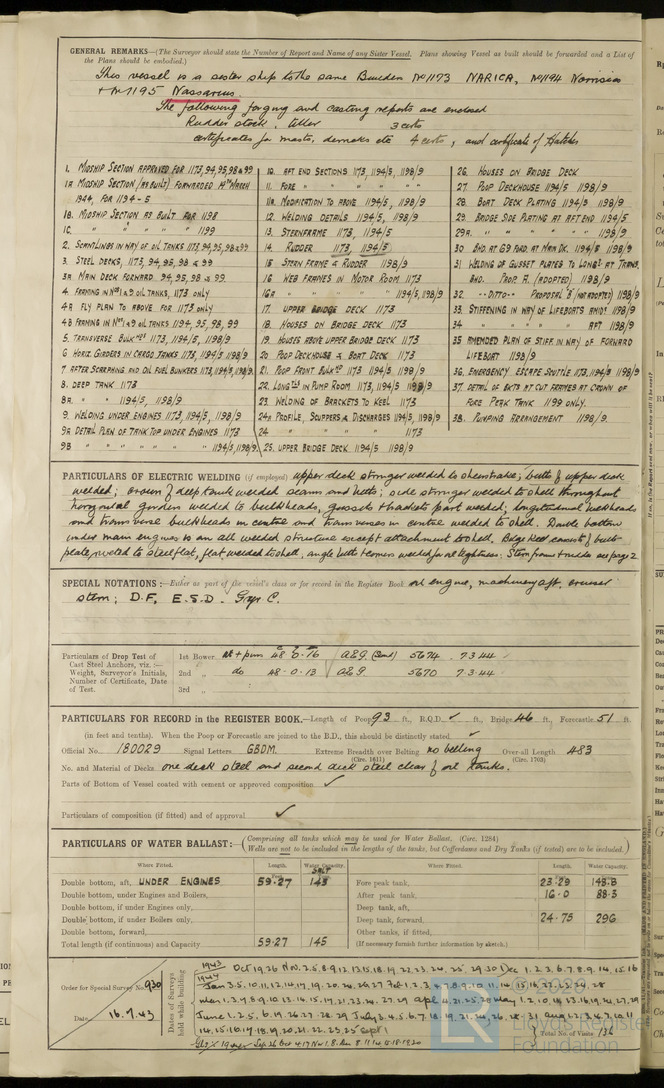 GENERAL REMARKS—(The Surveyor should state the Number of Report and Name of any Sister Vessel. Plans showing Vessel as built should be forwarded and a List of
the Plans should be embodied.)
This vessel is a sister ship to the same Builders No 1173 NARICA, No 1194 Norrisia
+ No 1195 Nassarius.
The following forging and casting reports are enclosed
Rudder stock, tiller 3 certs
certificates for masts, derricks etc 4 certs, and certificate of Hatches
1. MIDSHIP SECTION APPROVED FOR 1173, 94, 95, 98 & 99
1A MIDSHIP SECTION (AS BUILT) FORWARDED MARCH
1944, FOR 1194-5
1B. MIDSHIP SECTION AS BUILT FOR 1198
1C. " " " " " 1199
2. SCANTLINGS IN WAY OF OIL TANKS 1173, 94, 95, 98 & 99
3. STEEL DECKS, 1173, 94, 95, 98 & 99
3A MAIN DECK FORWARD. 94, 95, 98 & 99.
4. FRAMING IN Nos 1 & 9 OIL TANKS, 1173 ONLY
4A FLY PLAN TO ABOVE FOR 1173 ONLY
4B FRAMING IN Nos 1 & 9 OIL TANKS 1194, 95, 98, 99
5. TRANSVERSE BULKHDS 1173, 1194/5, 1198/9
6 HORIZ. GIRDERS IN CARGO TANKS 1173, 1194/5 1198/9
7. AFTER SCARPHING AND OIL FUEL BUNKERS 1173, 1194/5, 1198/9.
8. DEEP TANK 1173
8A. " " 1194/5, 1198/9
9. WELDING UNDER ENGINES 1173, 1194/5, 1198/9
9A DETAIL PLAN OF TANK TOP UNDER ENGINES 1173
9B " " " " " " 1194/5, 1198/9
10. AFT END SECTIONS 1173, 1194/5, 1198/9
11. FORE " " " " "
11A. MODIFICATION TO ABOVE 1194/5, 1198/9
12. WELDING DETAILS 1194/5, 1198/9
13. STERNFRAME 1173, 1194/5
14. RUDDER 1173, 1194/5
15 STERN FRAME & RUDDER 1198/9
16 WEB FRAMES IN MOTOR ROOM 1173
16A " " " " " 1194/5, 1198/9
17. UPPER BRIDGE DECK 1173
18. HOUSES ON BRIDGE DECK 1173
19. HOUSES ABOVE UPPER BRIDGE DECK 1173
20 POOP DECKHOUSE & BOAT DECK 1173
21. POOP FRONT BULKHD 1173, 1194/5, 1198/9
22. LONGLS IN PUMP ROOM 1173, 1194/5, 1198/9
23. WELDING OF BRACKETS TO KEEL 1173
24A PROFILE, SCUPPERS & DISCHARGES 1194/5, 1198/9
24 " " " 1173
25. UPPER BRIDGE DECK 1194/5 1198/9
26. HOUSES ON BRIDGE DECK
27. POOP DECKHOUSE 1194/5 1198/9
28. BOAT DECK PLATING 1194/5 1198/9
29. BRIDGE SIDE PLATING AT AFT END 1194/5
29A. " " " " " " 1198/9
30 BHD. AT 69 FORD. AT MAIN DK. 1194/5 1198/9
31 WELDING OF GUSSET PLATES TO LONGL AT TRANS.
BHD. PROP. A. (ADOPTED) 1198/9
32 --DITTO-- PROPOSAL "B" (NOT ADOPTED) 1198/9
33. STIFFENING IN WAY OF LIFEBOATS AMIDS 1198/9
34 " " " " AFT 1198/9
35 AMENDED PLAN OF STIFF. IN WAY OF FORWARD
LIFEBOAT 1198/9
36. EMERGENCY ESCAPE SHUTTLE 1173, 1194/5, 1198/9
37. DETAIL OF BKTS AT CUT FRAMES AT CROWN OF
FORE PEAK TANK 1199 ONLY.
38. PUMPING ARRANGEMENT 1198/9.
PARTICULARS OF ELECTRIC WELDING (if employed) upper deck stringer welded to sheerstrake; butts of upper deck
welded; crown of deep tank welded seams and butts; side stringer welded to shell throughout
horizontal girders welded to bulkheads, gussets & brackets part welded; longitudinal bulkheads
and transverse bulkheads in centre and transverses in centre welded to shell. Double bottom
under main engines is an all welded structure except attachment to shell. Bilge keel consists of bulb
plate, riveted to steel flat, flat welded to shell, angle butts & corners welded for oil tightness. Stern frame & rudder see page 2
SPECIAL NOTATIONS:—Either as part of the vessel's class or for record in the Register Book oil engine, machinery aft, cruiser
stern; D.F, E.S.D. Gyr C.
Particulars of Drop Test of
Cast Steel Anchors, viz. :—
Weight, Surveyor's Initials,
Number of Certificate, Date
of Test.
1st Bower at + pins 48 0 16 A&G (Sund) 5674 7 3 44
2nd " do 48 0 13 A&G 5670 7.3.44
3rd "
PARTICULARS FOR RECORD in the REGISTER BOOK.—Length of Poop 93 ft., R.Q.D. ✓ ft., Bridge 46 ft., Forecastle 51 ft.
(in feet and tenths). When the Poop or Forecastle are joined to the B.D., this should be distinctly stated ✓
Official No. 180029 Signal Letters GBDM. Extreme Breadth over Belting no belting Over-all Length 483
(Circ. 1611) (Circ. 1703).
No. and Material of Decks one deck steel and second deck steel clear of oil tanks.
Parts of Bottom of Vessel coated with cement or approved composition ✓
Particulars of composition (if fitted) and of approval ✓
PARTICULARS OF WATER BALLAST:— (Comprising all tanks which may be used for Water Ballast. (Circ. 1284)
Wells are not to be included in the lengths of the tanks, but Cofferdams and Dry Tanks (if tested) are to be included.)
Where Fitted. Length. Water Capacity. Where Fitted. Length. Water Capacity.
SALT
Double bottom, aft, UNDER ENGINES 59.27 145 Fore peak tank, 23.29 148.8
Double bottom, under Engines and Boilers, After peak tank, 16.0 88.3
Double bottom, if under Engines only, Deep tank, aft,
Double bottom, if under Boilers only, Deep tank, forward, 24.75 296
Double bottom, forward, Other tanks, if fitted,
Total length (if continuous) and Capacity 59.27 145 (If necessary furnish further information by sketch.)
Order for Special Survey No. 930
Date 16.7.43
Dates of Surveys
held while building
1943
1944
Total No. of Visits 136
LR
Lloyds Register
Foundation